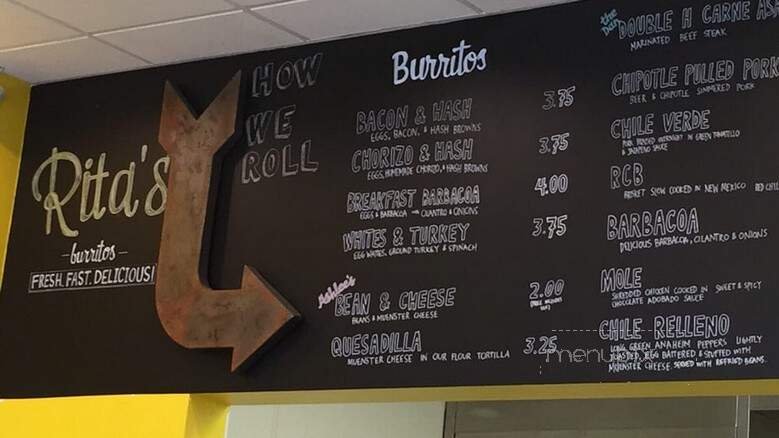 Rita's
burritos
FRESH. FAST. DELICIOUS!
HOW
WE
ROLL
Burritos
BACON & HASH 3.75
EGGS, BACON, & HASH BROWNS
CHORIZO & HASH 3.75
EGGS, HOMEMADE CHORIZO, & HASH BROWNS
BREAKFAST BARBACOA 4.00
EGGS & BARBACOA CILANTRO & ONIONS
WHITES & TURKEY 3.75
EGG WHITES, GROUND TURKEY & SPINACH
Ashlee's
BEAN & CHEESE 2.00
BEANS & MUENSTER CHEESE
QUESADILLA 3.25
MUENSTER CHEESE IN OUR FLOUR TORTILLA
the
DOUBLE H CARNE
MARINATED BEEF STEAK
CHIPOTLE PULLED PORK
BEER & CHIPOTLE SIMMERED PORK
CHILE VERDE
PORK OVERNIGHT IN GREEN TOMATILLO
& JALAPEÑO SAUCE
RCB
BRISKET SLOW COOKED IN NEW MEXICO RED
BARBACOA
DELICIOUS BARBACOA, CILANTRO & ONIONS
MOLE
SHREDDED CHICKEN COOKED IN SWEET & SPICY
CHOCOLATE ADOBADO SAUCE
CHILE RELLENO
LONG GREEN ANAHEIM PEPPERS LIGHTLY
ROASTED, EGG BATTERED & STUFFED WITH
MUENSTER CHEESE. SERVED WITH REFRIED BEANS.